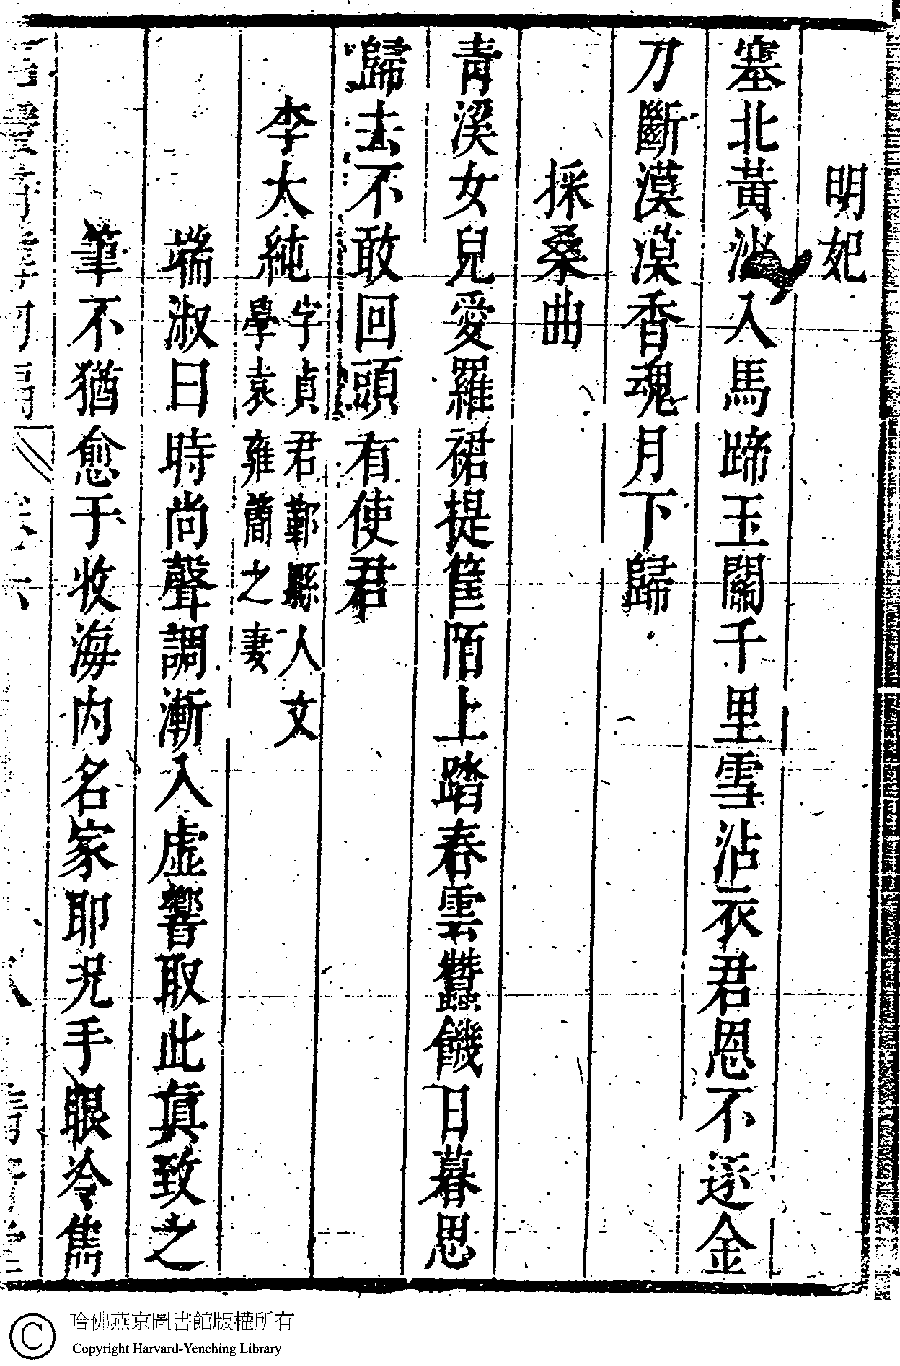 明妃
塞北黃沙入馬蹄玉關千里雪沾衣君恩不逐金
刀斷漠漠香魂月下歸
採桑曲
青溪女兒愛羅裙提筐陌上踏春雲蠶饑日暮思
歸去不敢回頭有使君
李太純
字貞君鄞縣人文
學袁雍簡之妻
端淑曰時尚聲調漸入虛響取此真致之
筆不猶愈于收海內名家耶況手眼冷雋
哈佛燕京圖書館版權所有
Copyright Harvard-Yenching Library